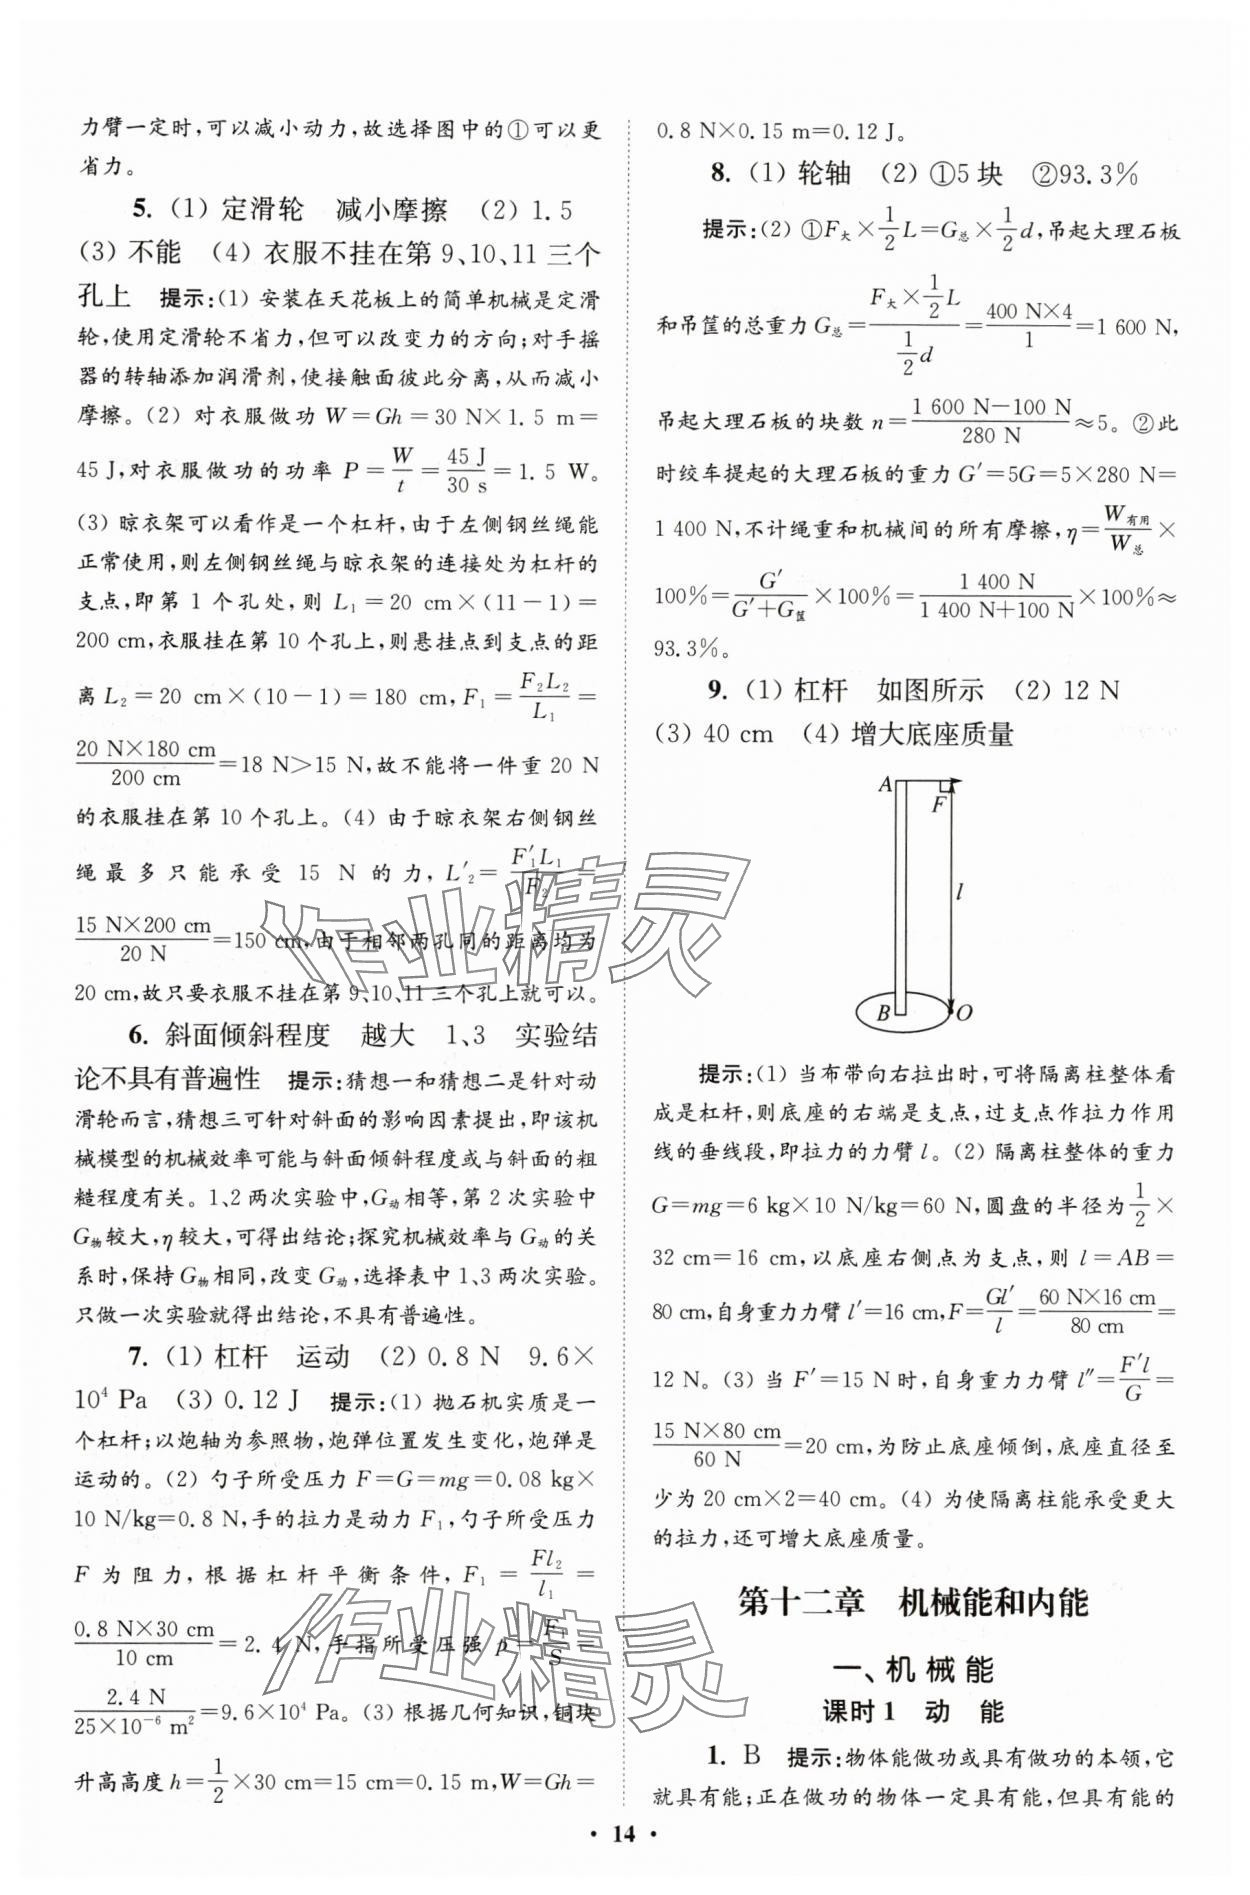 力臂一定时,可以减小动力,故选择图中的①可以更
省力。
5. (1) 定滑轮 减小摩擦 (2) 1.5
(3) 不能 (4) 衣服不挂在第 9、10、11 三个
孔上 提示:(1) 安装在天花板上的简单机械是定滑
轮,使用定滑轮不省力,但可以改变力的方向;对手摇
器的转轴添加润滑剂,使接触面彼此分离,从而减小
摩擦。(2) 对衣服做功 W=Gh=30 N×1.5 m=
45 J,对衣服做功的功率 P=W/t=45 J/30 s=1.5 W。
(3) 晾衣架可以看作是一个杠杆,由于左侧钢丝绳能
正常使用,则左侧钢丝绳与晾衣架的连接处为杠杆的
支点,即第 1 个孔处,则 L₁=20 cm×(11-1)=
200 cm,衣服挂在第 10 个孔上,则悬挂点到支点的距
离 L₂=20 cm×(10-1)=180 cm,F₁=F₂L₂/L₁=
20 N×180 cm/200 cm=18 N>15 N,故不能将一件重 20 N
的衣服挂在第 10 个孔上。(4) 由于晾衣架右侧钢丝
绳最多只能承受 15 N 的力,L′₂=F′₁L₁/F₂=
15 N×200 cm/20 N=150 cm,由于相邻两孔间的距离均为
20 cm,故只要衣服不挂在第 9、10、11 三个孔上就可以。
6. 斜面倾斜程度 越大 1、3 实验结
论不具有普遍性 提示:猜想一和猜想二是针对动
滑轮而言,猜想三可针对斜面的影响因素提出,即该机
械模型的机械效率可能与斜面倾斜程度或与斜面的粗
糙程度有关。1、2 两次实验中,G动相等,第 2 次实验中
G物较大,η较大,可得出结论;探究机械效率与 G动的关
系时,保持 G物相同,改变 G动,选择表中 1、3 两次实验。
只做一次实验就得出结论,不具有普遍性。
7. (1) 杠杆 运动 (2) 0.8 N 9.6×
10⁴ Pa (3) 0.12 J 提示:(1) 抛石机实质是一
个杠杆;以炮轴为参照物,炮弹位置发生变化,炮弹是
运动的。(2) 勺子所受压力 F=G=mg=0.08 kg×
10 N/kg=0.8 N,手的拉力是动力 F₁,勺子所受压力
F 为阻力,根据杠杆平衡条件,F₁=Fl₂/l₁=
0.8 N×30 cm/10 cm=2.4 N,手指所受压强 p=F₁/S=
2.4 N/25×10⁻⁶ m²=9.6×10⁴ Pa。(3) 根据几何知识,铜块
升高高度 h=1/2×30 cm=15 cm=0.15 m,W=Gh=
0.8 N×0.15 m=0.12 J。
8. (1) 轮轴 (2) ①5 块 ②93.3%
提示:(2) ①F大×1/2L=G总×1/2d,吊起大理石板
和吊筐的总重力 G总=F大×1/2L/1/2d=400 N×4/1=1 600 N,
吊起大理石板的块数 n=1 600 N-100 N/280 N≈5。②此
时绞车提起的大理石板的重力 G′=5G=5×280 N=
1 400 N,不计绳重和机械间的所有摩擦,η=W有用/W总×
100%=G′/G′+G筐×100%=1 400 N/1 400 N+100 N×100%≈
93.3%。
9. (1) 杠杆 如图所示 (2) 12 N
(3) 40 cm (4) 增大底座质量
A F
l
B O
提示:(1) 当布带向右拉出时,可将隔离柱整体看
成是杠杆,则底座的右端是支点,过支点作拉力作用
线的垂线段,即拉力的力臂 l。(2) 隔离柱整体的重力
G=mg=6 kg×10 N/kg=60 N,圆盘的半径为1/2×
32 cm=16 cm,以底座右侧点为支点,则 l=AB=
80 cm,自身重力力臂 l′=16 cm,F=Gl′/l=60 N×16 cm/80 cm=
12 N。(3) 当 F′=15 N 时,自身重力力臂 l″=F′l/G=
15 N×80 cm/60 N=20 cm,为防止底座倾倒,底座直径至
少为 20 cm×2=40 cm。(4) 为使隔离柱能承受更大
的拉力,还可增大底座质量。
第十二章 机械能和内能
一、机械能
课时 1 动 能
1. B 提示:物体能做功或具有做功的本领,它
就具有能;正在做功的物体一定具有能,但具有能的
• 14 •
作业精灵
作业精灵